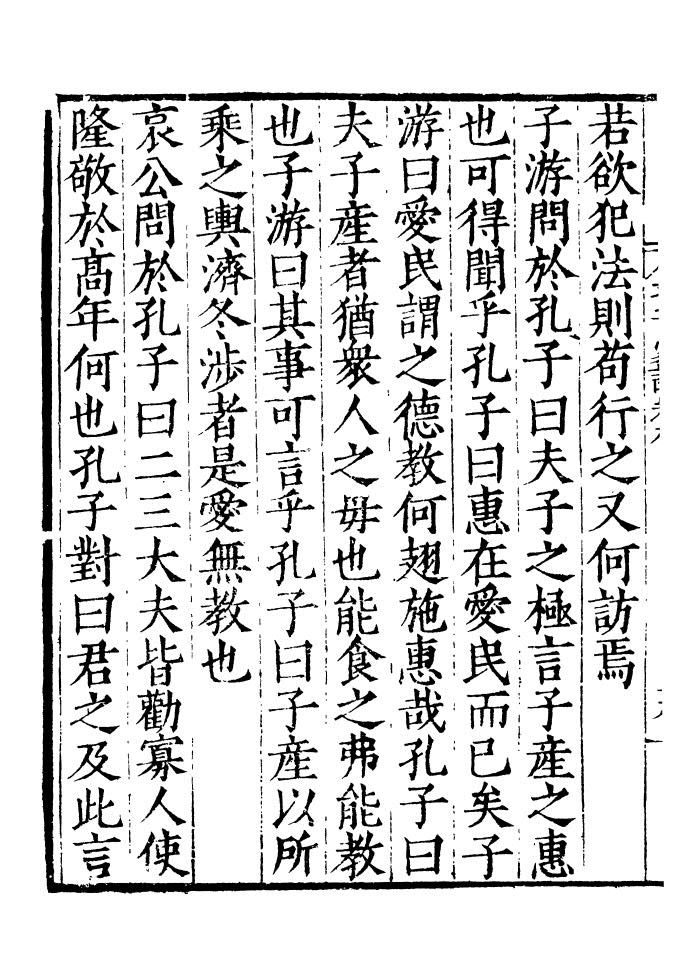 若欲犯法則苟行之又何訪焉
子游問於孔子曰夫子之極言子產之惠
也可得聞乎孔子曰惠在愛民而已矣子
游曰愛民謂之德教何翅施惠哉孔子曰
夫子產者猶衆人之毋也能食之弗能教
也子游曰其事可言乎孔子曰子產以所
乘之輿濟冬渉者是愛無教也
哀公問於孔子曰二三大夫皆勸寡人使
隆敬於髙年何也孔子對曰君之及此言